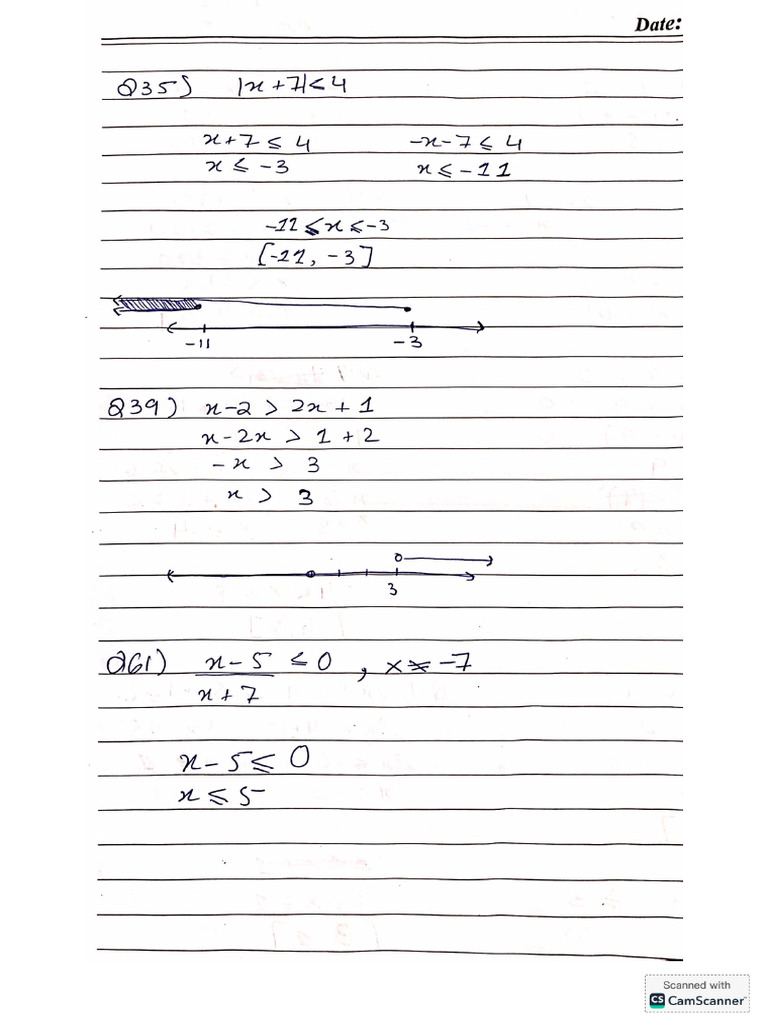 Date:
Q35) |x+7|<4
x+7 ≤ 4 -x-7 ≤ 4
x ≤ -3 x ≤ -11
-11 ≤ x ≤ -3
[-11, -3]
-11 -3
Q39) x-2 > 2x + 1
x-2x > 1 + 2
-x > 3
x > 3
3
Q61) x-5 ≤ 0 , x ≠ -7
x+7
x-5 ≤ 0
x ≤ 5
Scanned with
CS CamScanner